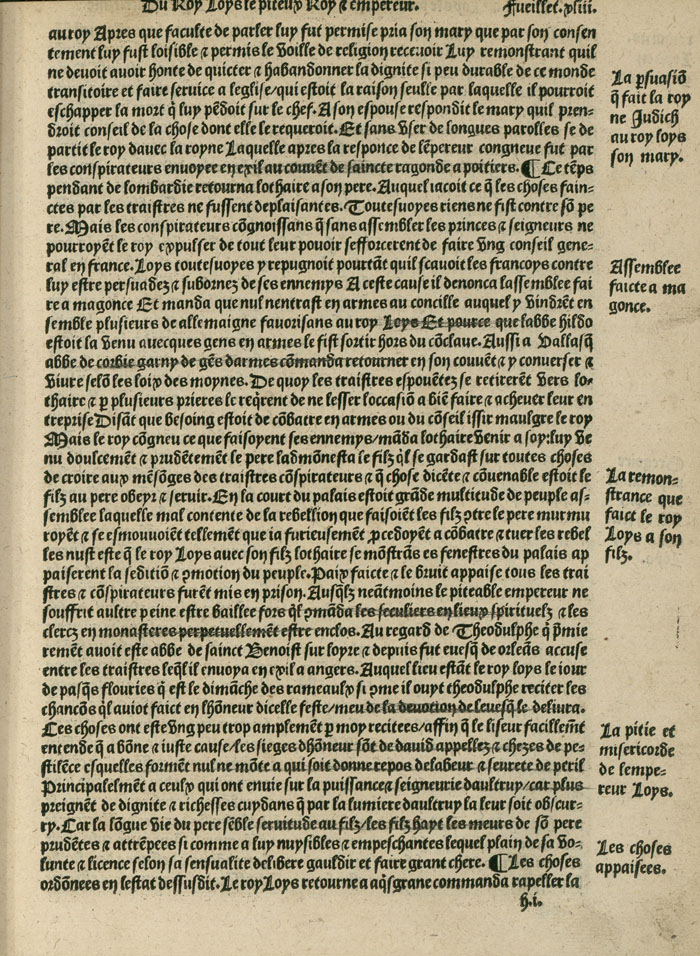 Du Roy Loys le piteux Roy ⁊ empereur. Fueillet. xliii.
au roy Apres que faculte de parler luy fut permise pria son mary que par son consen
tement luy fust loisible ⁊ permis le voille de religion recevoir Luy remonstrant quil
ne devoit avoir honte de quicter ⁊ habandonner la dignite si peu durable de ce monde
transitoire et faire service a leglise/qui estoit la raison seulle par laquelle il pourroit
eschapper la mort q̄ luy pēdoit sur le chef. A son espouse respondit le mary quil pren-
droit conseil de la chose dont elle le requeroit. Et sans vser de longues parolles se de
partit le roy davec la royne Laquelle apres la responce de lēpereur congneue fut par
les conspirateurs envoyee en exil au couvēt de saincte ragonde a poitiers. ¶ Ce tēps
pendant de lombardie retourna lothaire a son pere. Auquel iacoit ce q̄ les choses fain-
ctes par les traistres ne fussent deplaisantes. Toutesuoyes riens ne fist contre sō pe
re. Mais les conspirateurs cōgnoissans q̄ sans assembler les princes ⁊ seigneurs ne
pourroyēt le roy expulser de tout leur pouoir sefforcerent de faire vng conseil gene-
ral en france. Loys toutesuoyes y repugnoit pourtāt quil scauoit les francoys contre
luy estre persuadez ⁊ subornez de ses ennemys A ceste cause il denonca lassemblee fai
re a magonce Et manda que nul nentrast en armes au concille auquel y vindrēt en
semble plusieurs de allemaigne fauorisans au roy Loys Et pource que labbe hildo
estoit la venu auecques gens en armes le fist sortir hors du cōclaue. Aussi a vallasq̄
abbe de corbie garny de gēs darmes cōmanda retourner en son couuēt ⁊ y converser ⁊
vivre selō les loix des moynes. De quoy les traistres espouētez se retirerēt vers lo-
thaire ⁊ ꝑ plusieurs prieres le reqrent de ne lesser loccasiō a biē faire ⁊ achever leur en
treprise Disāt que besoing estoit de cōbatre en armes ou du cōseil issir maulgre le roy
Mais le roy cōgneu ce que faisoyent ses ennemys/māda lothaire venir a soy:luy ve
nu doulcemēt ⁊ prudētemēt le pere ladmōnesta le filz q̄l se gardast sur toutes choses
de croire aux mēsōges des traistres cōspirateurs ⁊ q̄ chose dicēte ⁊ cōuenable estoit le
filz au pere obeyr ⁊ servir. En la court du palais estoit grāde multitude de peuple as-
semblee laquelle mal contente de la rebellion que faisoiēt les filz ꝯtre le pere murmu
royēt ⁊ se esmouvoiēt tellement que ia furieusemēt ꝓcedoyēt a cōbatre ⁊ tuer les rebel
les nust este q̄ le roy Loys avec son filz lothaire se mōstrās es fenestres du palais ap
paiserent la seditiō ⁊ ꝯmotion du peuple. Paix faicte ⁊ le bruit appaise tous les trai
stres ⁊ cōspirateurs furēt mis en prison. Ausq̄lz neātmoins le piteable empereur ne
souffrit aultre peine estre baillee fors q̄l ꝯmāda les seculiers en lieux spirituelz ⁊ les
clercz en monasteres perpetuellemēt estre enclos. Au regard de Theodulphe q̄ p̄mie
remēt avoit este abbe de sainct Benoist sur loyre ⁊ depuis fut evesq̄ de orleās accuse
entre les traistres leq̄l il envoya en exil a angers. Auquel lieu estāt le roy loys le iour
de pasq̄s flouries q̄ est le dimāche des rameaulx si ꝯme il ouyt theodulphe reciter les
chancōs q̄l auiot faict en lhōneur dicelle feste/meu de la devotion de levesq̄ le delivra.
Ces choses ont este vng peu trop amplemēt ꝑ moy recitees/affin q̄ le liseur facillemt̄
entende q̄ a bōne ⁊ iuste cause/les sieges dhōneur sōt de david appellez ⁊ chezes de pe-
stilēce esquelles formēt nul ne mōte a qui soit donne repos de labeur ⁊ seurete de peril
Principalemēt a ceulx qui ont envie sur la puissance ⁊ seigneurie daultruy/car plus
preignēt de dignite ⁊ richesses cuydans q̄ par la lumiere daultruy la leur soit obscur-
ry. Car la lōgue vie du pere sēble servitude au filz/les filz hayt les meurs de sō pere
prudētes ⁊ attrēpees si comme a luy nuysibles ⁊ empeschantes lequel plain de sa vo-
lunte ⁊ licence selon sa sensualite delibere gauldir et faire grant chere. ¶ Les choses
ordōnees en lestat dessusdit. Le roy Loys retourne a aq̄sgrane commanda rapeller la
h.i.
La ꝑsuasiō
q̄ fait la roy
ne Judich
au roy loys
son mary.
Assemblee
faicte a ma
gonce.
La remon-
strance que
faict le roy
Loys a son
filz.
La pitie et
misericorde
de lempe-
reur Loys.
Les choses
appaisees.